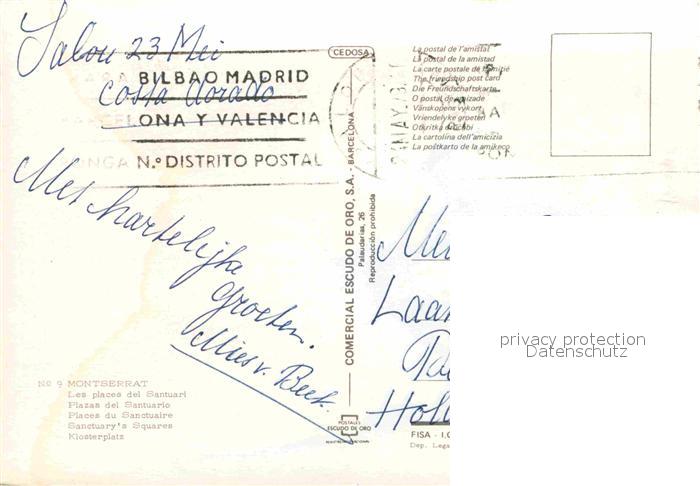 Salou 23 Mei
Costa dorado
BILBAO MADRID
LONA Y VALENCIA
N.º DISTRITO POSTAL
Met hartelijke
groeten.
Mies v. Beek.
Nº 9 MONTSERRAT
Les places del Santuari
Plazas del Santuario
Places du Sanctuaire
Sanctuary's Squares
Klosterplatz
CEDOSA
COMERCIAL ESCUDO DE ORO, S.A. - BARCELONA
Palaudarias, 26
Reproducción prohibida
POSTALES
ESCUDO DE ORO
La postal de l'amistat
La postal de la amistad
La carte postale de l'amitié
The friendship post card
Die Freundschaftskarte
O postal de amizade
Vänskapens vykort
Vriendelyke groeten
La cartolina dell'amicizia
La postkarto de la amikeco
Laan
Holl
FISA - I.
Dep. Lega
privacy protection
Datenschutz